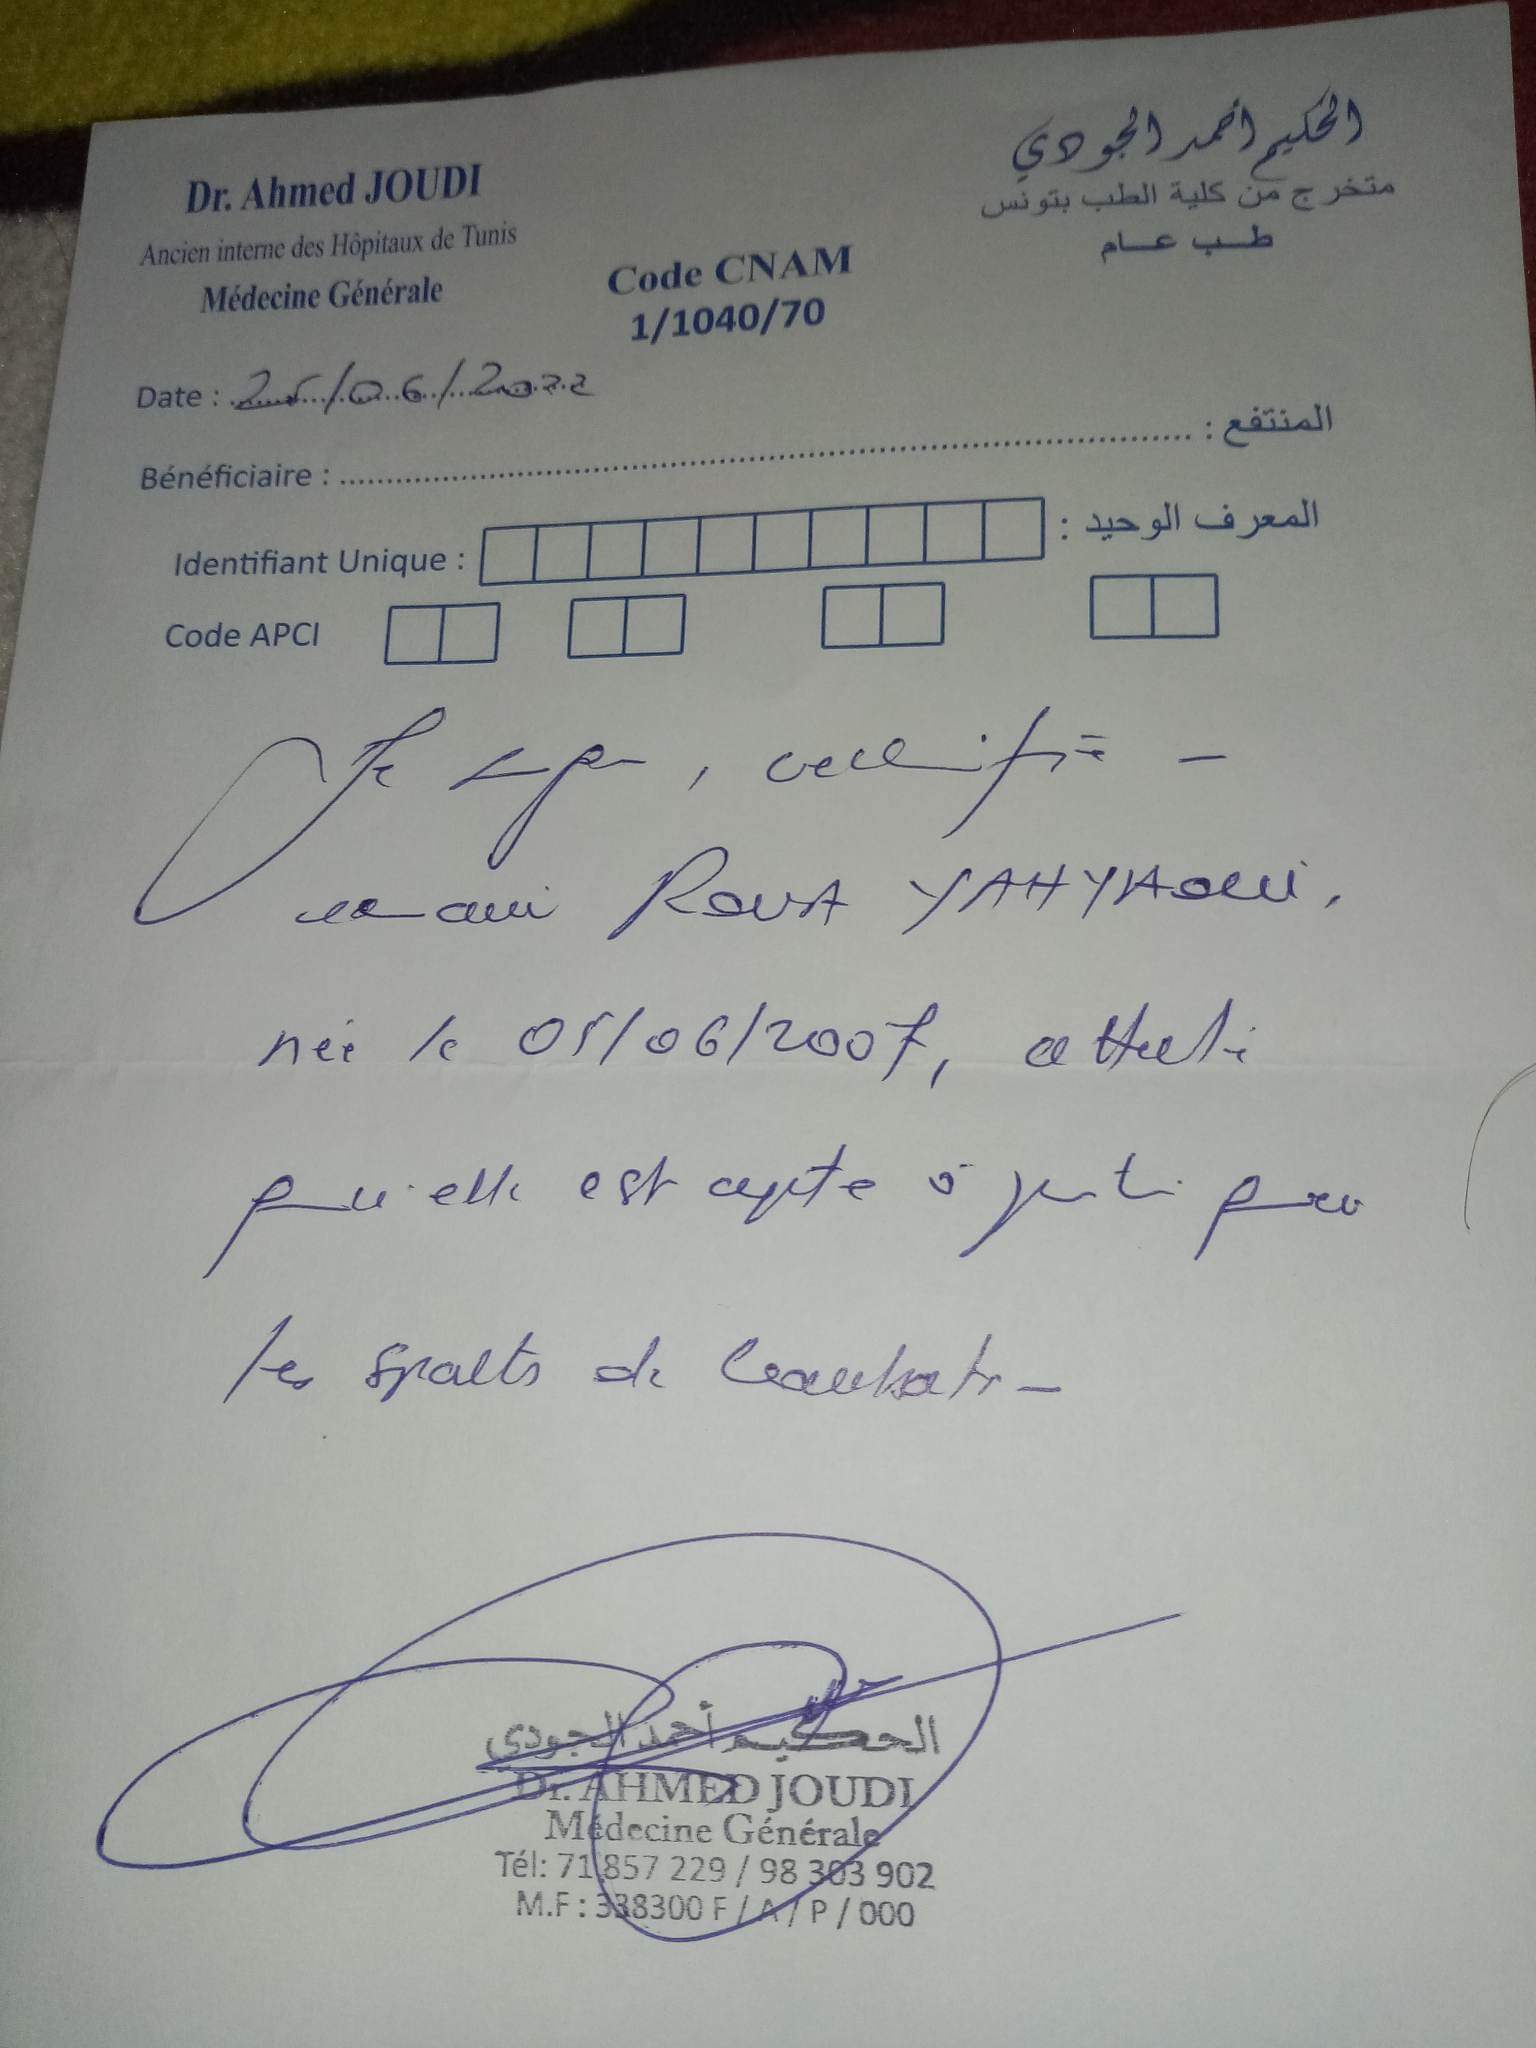 Dr. Ahmed JOUDI
Ancien interne des Hôpitaux de Tunis
Médecine Générale
الحكيم أحمد الجودي
متخرج من كلية الطب بتونس
طب عام
Code CNAM
1/1040/70
Date : 25/06/2022
Bénéficiaire : المنتفع :
Identifiant Unique : المعرف الوحيد :
Code APCI
Je certifie
RouA YAHYAoui,
née le 05/06/2007, atteste
qu'elle est apte à pour
les sports de Combat
الحكيم أحمد الجودي
Dr. AHMED JOUDI
Médecine Générale
Tél: 71 857 229 / 98 303 902
M.F : 338300 F / A / P / 000